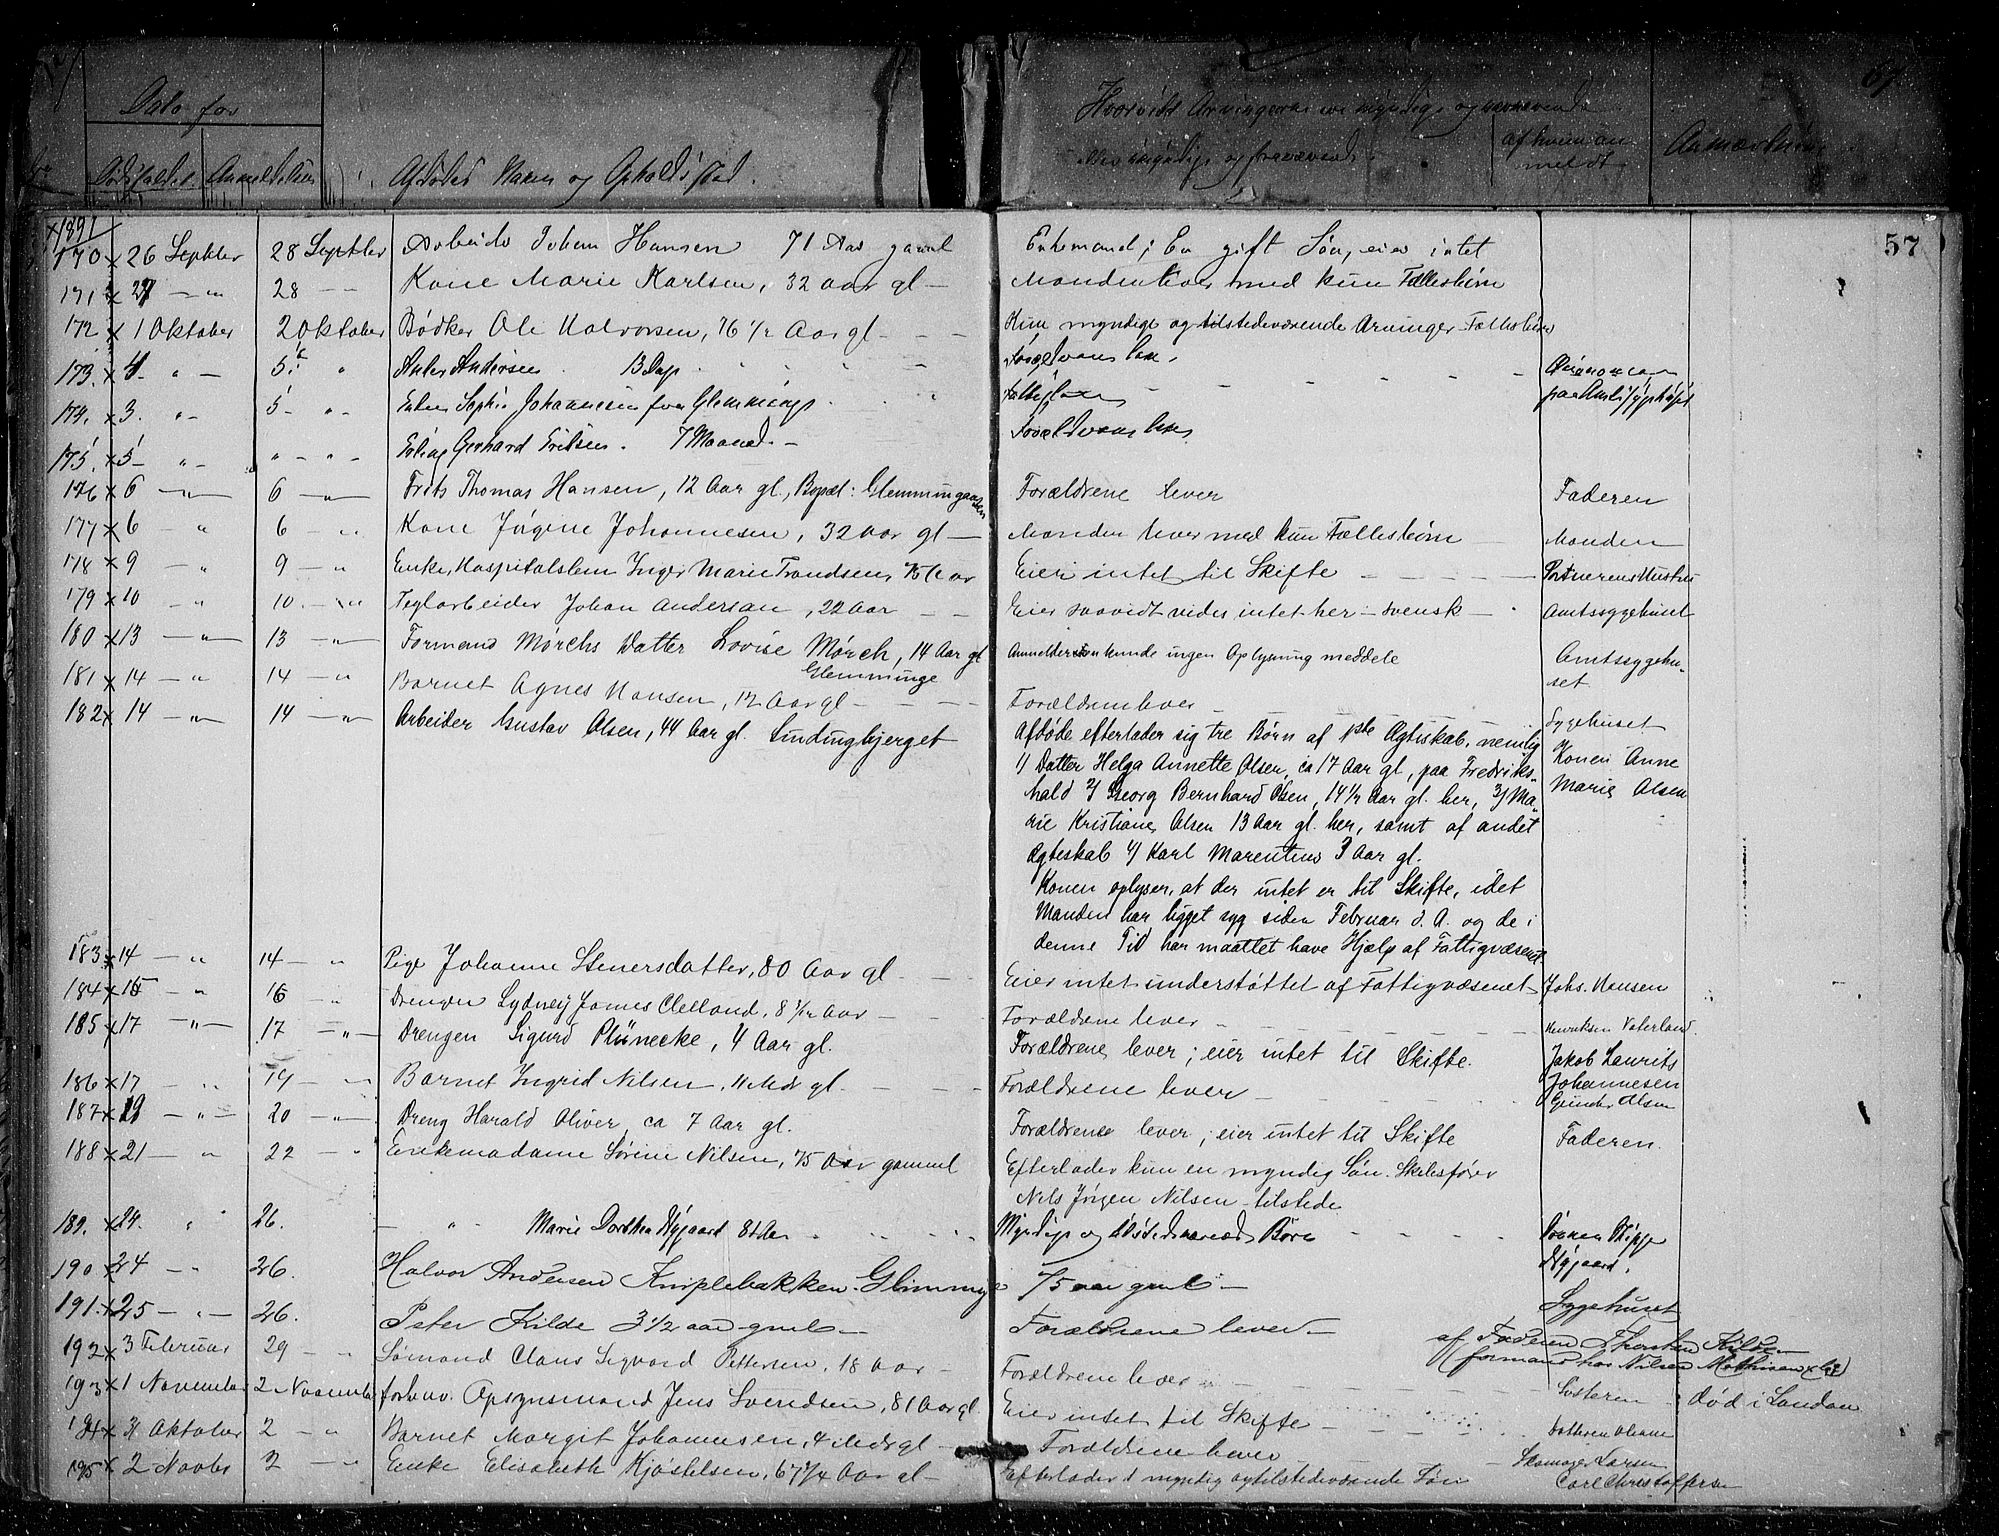 Dato for
Dødsfaldet Anmeldelsen
Afdødes Navn og Opholdssted.
Hvorvidt Arvingerne ere myndige og nærværende
eller umyndige og fraværende
af hvem an
meldt
57
1891
170 x 26 Septbr 28 Septbr Arbeider Johan Hansen 71 Aar gaml Enkemand; En gift Søn, eier intet
171 x 27 — „ — 28 — Kone Marie Karlsen, 32 aar gl — Manden lever med kun Fællesbørn
172 x 1 Oktober 2 Oktober Bødker Ole Halvorsen, 76 1/2 Aar gl — Kun myndige og tilstedeværende Arvinger Fællesbørn
173. x 4 „ — 5 „ Andersen
174. x 3. „ — 5 — „ — Sophie Johannesen fra Glemminge paa Amtssygehuset
175. x 5 — „ — „ — „ — Gerhard Eriksen. 7 Maaned —
176 x 6 — „ — 6 — „ — Frits Thomas Hansen, 12 Aar gl., Bopæl: Glemmingaasen Forældrene lever Faderen
177 x 6 — „ 6 — „ Kone Jørgine Johannesen, 32 aar gl — Manden lever med kun Fællesbørn — Manden
178 x 9 — „ 9 — „ Enke, Hospitalslem Inger Marie Trondsen, Eier intet til Skifte — Portnerens Hustru
179 x 10 „ 10 — „ — Teglarbeider Johan Anderson, 22 Aar — Eier saavidt vides intet her — svensk — Amtssygehuset
180 x 13 — „ — 13 — „ Formand Mørchs Datter Lovise Mørch, 14 Aar gl Anmelderen kunde ingen Oplysning meddele Amtssygehu-
set
Glemminge
181 x 14 — „ 14 — „ Barnet Agnes Hansen, 12 Aar gl — Forældrene lever — Sygehuset
182 x 14 — „ — 14 — „ — Arbeider Gustav Olsen, 44 Aar gl. Sindingbjerget Afdøde efterlader sig tre Børn af 1ste Ægteskab, nemlig Konen Anne
1/ Datter Helga Annette Olsen, ca 17 Aar gl, paa Fredriks- Marie Olsen
hald 2/ Georg Bernhard Olsen, 14 1/2 Aar gl. her, 3/ Ma-
rie Kristiane Olsen 13 Aar gl. her, samt af andet
Ægteskab 4/ Karl Marentius 3 Aar gl.
Konen oplyser, at der intet er til Skifte, idet
Manden har ligget syg siden Februar d. A. og de i
denne Tid har maattet have Hjælp af Fattigvæsenet.
183 x 14 — „ 14 — „ Pige Johanne Stenersdatter, 80 Aar gl — Eier intet understøttet af Fattigvæsenet Johs. Hansen
184 x 15 — „ 16 — „ Drengen Sydney James Clelland, 8 1/2 Aar — Forældrene lever — Henriksen Vaterland.
185 x 17 — „ — 17 — „ Drengen Sigurd Plünecke, 4 Aar gl. Forældrene lever; eier intet til Skifte. Jakob Laurits
Johannesen
186 x 17 — „ 19 — „ Barnet Ingrid Nilsen, 11 Mdr gl. — Forældrene lever — Gunder Olsen
187 x 19 — „ 20 — „ — Dreng Harald Oliver ca 7 Aar gl. Forældrene lever; eier intet til Skifte Faderen.
188 x 21 — „ 22 — „ Enkemadame Sørine Nilsen, 75 Aar gammel Efterlader kun en myndig Søn. Skibsfører
Nils Jørgen Nilsen — tilstede
189. x 24. „ 26. — „ — Marie Dorthea Nygaard 81 Aar Myndige og tilstedeværende Børn Sønnen
Nygaard.
190 x 24 — „ 26. Halvor Andersen Kniplebakken. Glemminge 75 aar gml — Sygehuset
191. x 25 — „ — 26. Peter Kilde 3 1/2 aar gml — Forældrene lever — af Faderen Thorsten Kilde
192 x 3 Februar 29 — „ Sømand Claus Sigvard Pettersen, 18 Aar — Forældrene lever — Søsteren — død i London
193 x 1 November 2 November forhenv. Opsynsmand Jens Svendsen, 81 Aar gl Eier intet til Skifte — Datteren
194 x 31 Oktober 2 — „ Barnet Margit Johannesen, 4 Mdr gl — Forældrene lever — Skomager Larsen
195 x 2 Novbr 2 — „ Enke Elisabeth Kjøstelsen, 67 3/4 Aar gl — Efterlader 1 myndig og tilstedeværende Søn Carl Christoffersen